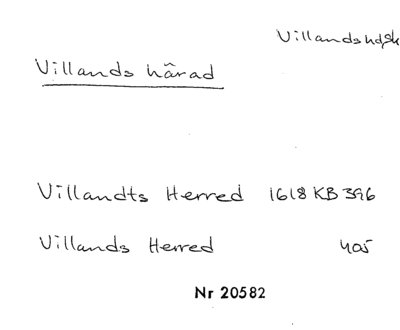 Villands hd, Sk
Villands härad
Villandts Herred 1618 KB 396
Villands Herred 405
Nr 20582